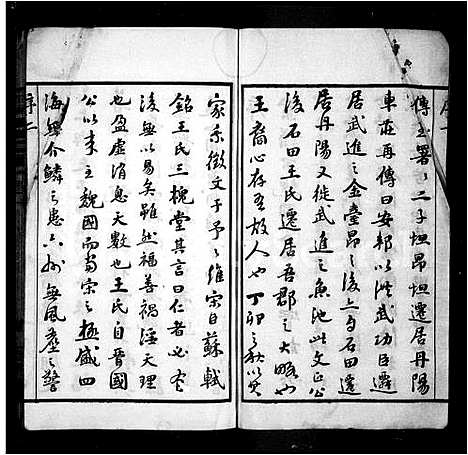 傳至署署二子坦昂坦遷居丹陽
車莊再傳曰安邦以洪武功臣遷
居武進之金臺昂之後上与石田遷
居丹陽又徙武進之魚池此文正公
後石田王氏遷居吾郡之大略也
王裔心存吾故人也丁卯之秋以其
序一
家乘徵文于予予維宗自蘇軾
銘王氏三槐堂其言曰仁者必有
後無以易矣雖然福善禍淫天理
也盈虛消息天數也王氏自晉國
公以來立魏國而當宗之極盛四
海無介鱗之患六州無風塵之警
序二